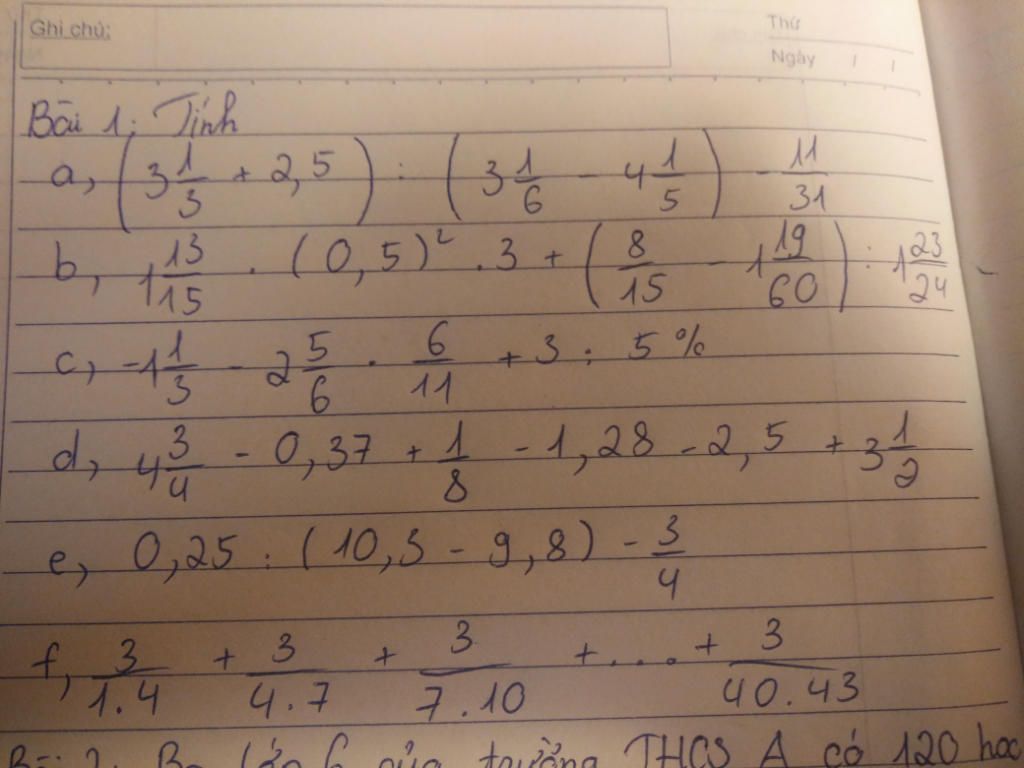 Ghi chú:
Thứ
Ngày / /
Bài 1: Tính
a, (3 1/3 + 2,5) : (3 1/6 - 4 1/5) - 11/31
b, 1 13/15 . (0,5)² . 3 + (8/15 - 1 19/60) : 1 23/24
c, -1 1/3 - 2 5/6 . 6/11 + 3 : 5%
d, 4 3/4 - 0,37 + 1/8 - 1,28 - 2,5 + 3 1/2
e, 0,25 : (10,3 - 9,8) - 3/4
f, 3/1.4 + 3/4.7 + 3/7.10 + .... + 3/40.43
Bài 2: Ba lớp 6 của trường THCS A có 120 học